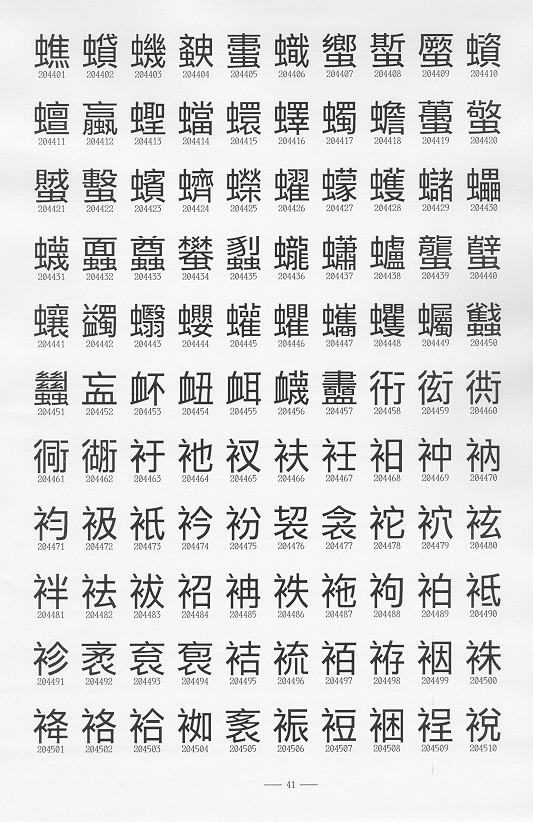 蟭 蟘 蟣 蟤 蟗 蟙 蠁 蟴 蟨 蠀
204401 204402 204403 204404 204405 204406 204407 204408 204409 204410
蟺 蠃 蟶 蟷 蠉 蠌 蠋 蟾 蠆 蟼
204411 204412 204413 204414 204415 204416 204417 204418 204419 204420
蠈 蟿 蠙 蠐 蠑 蠗 蠓 蠖 蠩 蠝
204421 204422 204423 204424 204425 204426 204427 204428 204429 204430
蠛 蠠 蠤 蠜 蠫 蠬 蠨 蠦 蠪 蠥
204431 204432 204433 204434 204435 204436 204437 204438 204439 204440
蠰 蠲 蠮 蠳 蠸 蠷 蠵 蠼 蠾 蠽
204441 204442 204443 204444 204445 204446 204447 204448 204449 204450
蠿 衁 衃 衄 衈 衊 衋 衎 衒 衖
204451 204452 204453 204454 204455 204456 204457 204458 204459 204460
衕 衚 衧 衪 衩 衭 衽 衵 衶 衲
204461 204462 204463 204464 204465 204466 204467 204468 204469 204470
袀 衱 衹 衿 衯 袃 衾 袉 袕 袨
204471 204472 204473 204474 204475 204476 204477 204478 204479 204480
袢 袪 袚 袑 袡 袟 袘 袧 袙 袛
204481 204482 204483 204484 204485 204486 204487 204488 204489 204490
袗 袤 袬 袌 袺 裗 袹 袸 裀 袾
204491 204492 204493 204494 204495 204496 204497 204498 204499 204500
袶 袼 袷 袽 袲 裖 裋 裍 裎 裞
204501 204502 204503 204504 204505 204506 204507 204508 204509 204510
— 41 —